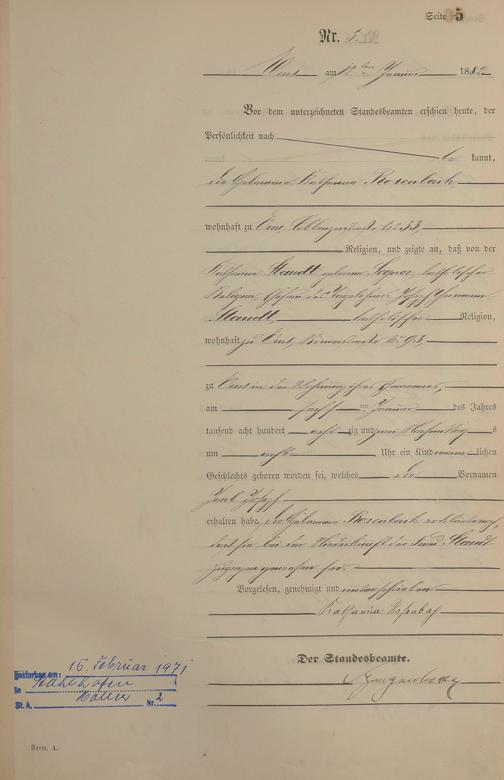 Seite 5
Nr. 5.
Ems am ten Januar 188
Vor dem unterzeichneten Standesbeamten erschien heute, der
Persönlichkeit nach
be kannt,
die Hebamme Katharina Rosenbach,
wohnhaft zu Ems Coblenzerstraße No 33,
Religion, und zeigte an, daß von der
Katharina Staudt geborene katholischer
Religion, Ehefrau des Joseph Hermann
Staudt katholischer Religion,
wohnhaft zu Ems, Römerstraße No 93,
zu Ems in der Wohnung ihres Ehemannes,
am Januar des Jahres
tausend acht hundert acht zig und
um Uhr ein Kind männ lichen
Geschlechts geboren worden sei, welches die Vornamen
Joseph
erhalten habe. die Hebamme Rosenbach
daß sie bei der Niederkunft der Frau Staudt
zugegen gewesen sei.
Vorgelesen, genehmigt und unterschrieben
Katharina Rosenbach
Der Standesbeamte.
Gestorben am: 15. Februar 1971
in
St. A. Nr. 2
Form. A.